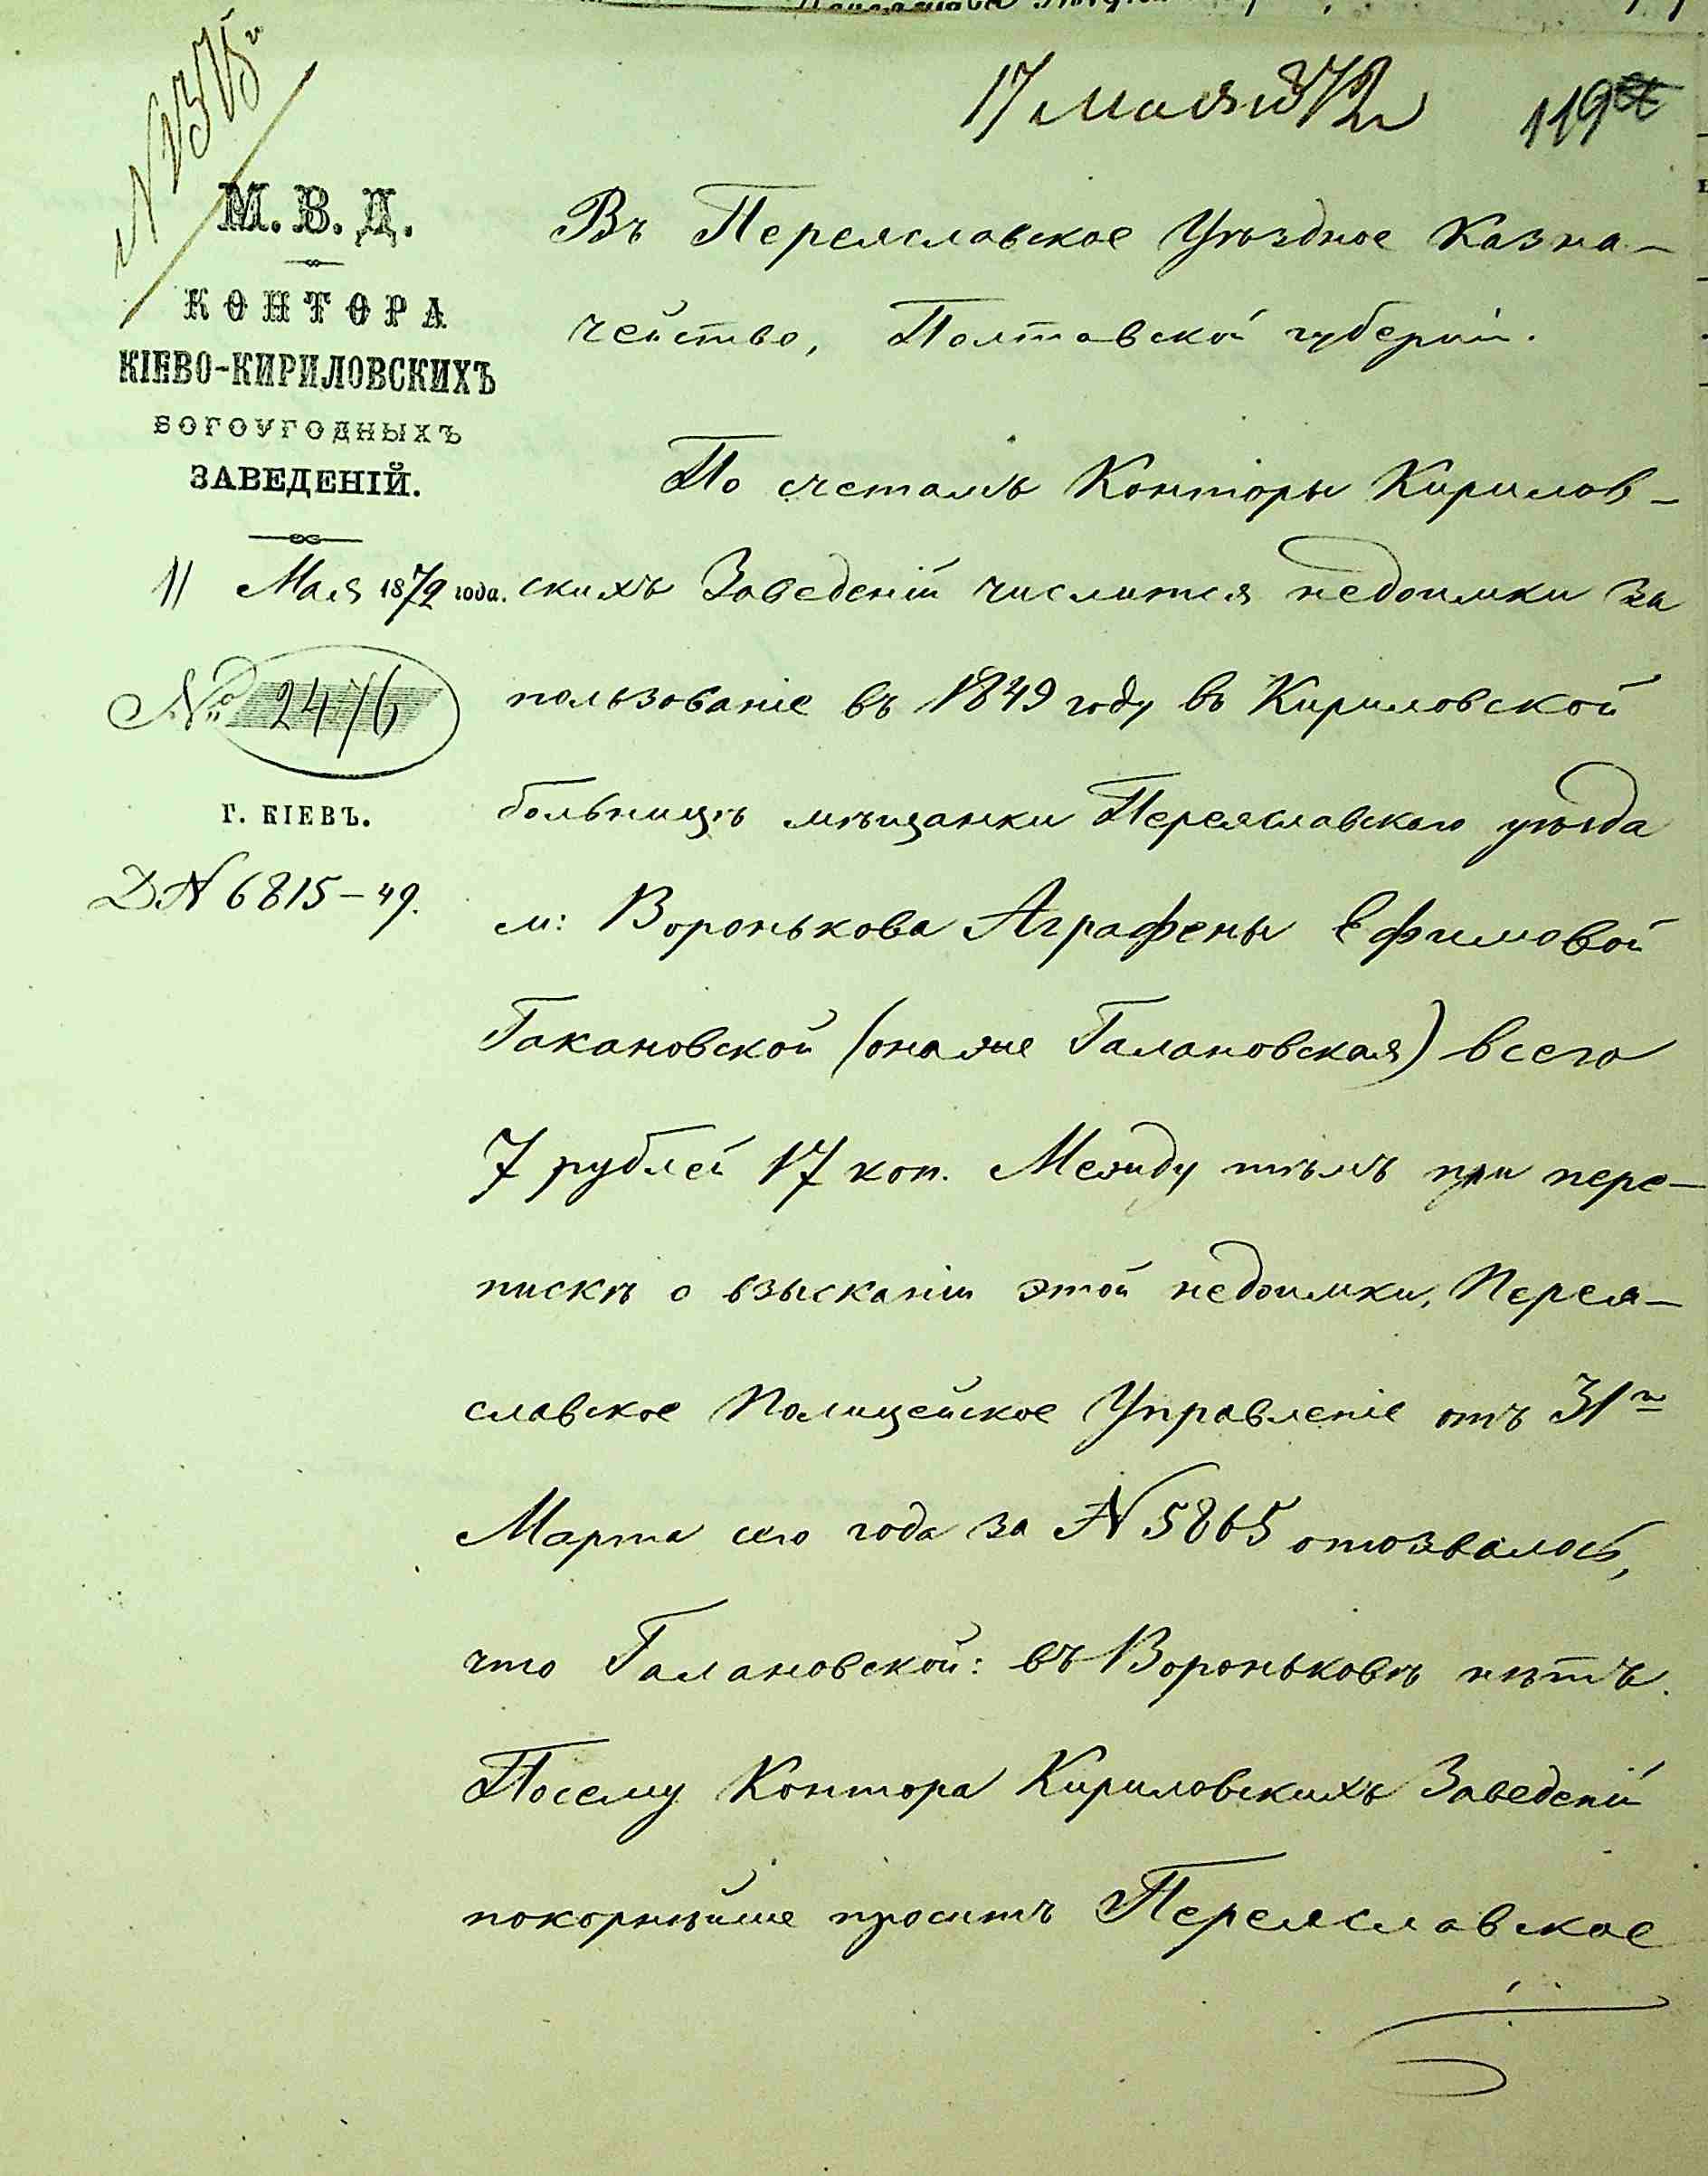 17 Мая 1872
119
М. В. Д.
КОНТОРА
КІЕВО-КИРИЛОВСКИХЪ
БОГОУГОДНЫХЪ
ЗАВЕДЕНІЙ.
11 Мая 1872 года.
№ 2476
Г. КІЕВЪ.
Д № 6815-49.
Въ Переяславское Уѣздное Казна-
чейство, Полтавской губерніи.
По счетамъ Конторы Кирилов-
скихъ Заведеній числится недоимки за
пользованіе въ 1849 году въ Кириловской
больницѣ мѣщанки Переяславскаго уѣзда
м: Воронькова Аграфены Ефимовой
Гакановской (она же Галановская) всего
7 рублей 17 коп. Между тѣмъ при пере-
пискѣ о взысканіи этой недоимки, Перея-
славское Полицейское Управленіе отъ 31го
Марта сего года за № 5865 отозвалось,
что Галановской: въ Вороньковѣ нѣтъ.
Посему Контора Кириловскихъ Заведеній
покорнѣйше проситъ Переяславское